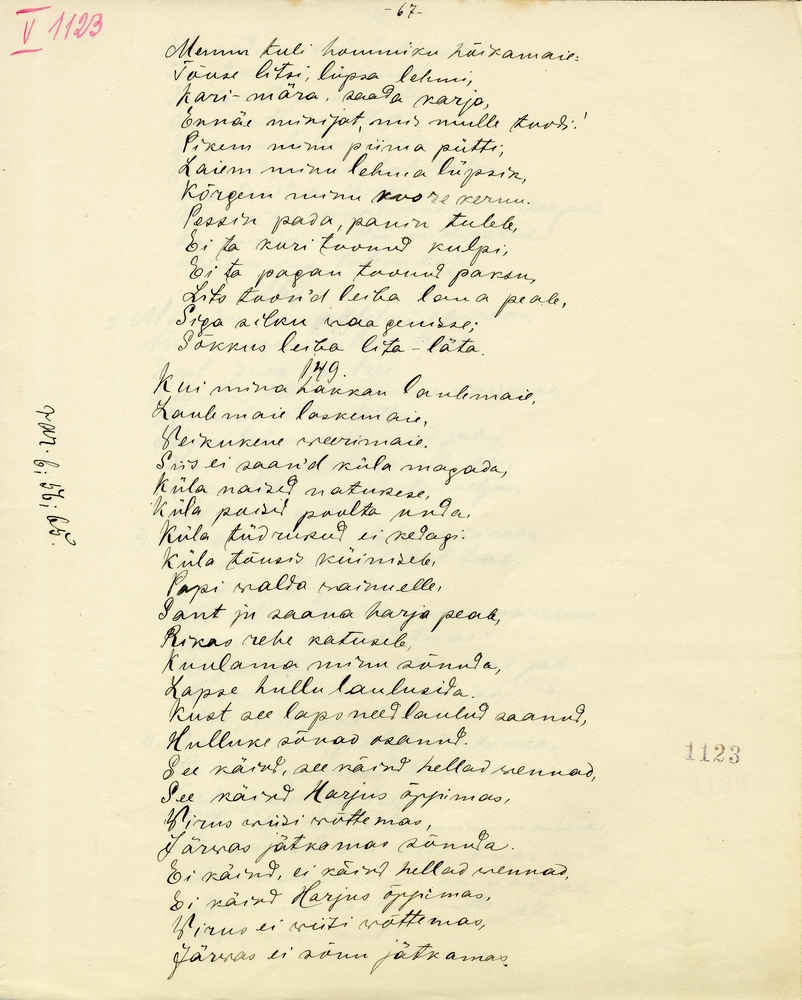 -67-
V 1123
Memm tuli hommiku hõikamaie:
Tõuse litsi, lüpsa lehmi,
Kari-mära, saada karja,
Ennäe minijat, mis mulle toodi!
Pikem minu piima pütti,
Laiem minu lehma lüpsik,
Kõrgem minu koore kernu.
Pessin pada, panin tulele,
Ei ta kuri toonud kulpi,
Ei ta pagan toonud paksu,
Lits toon'd leiba laua peale,
Siga silku waagenisse;
Sõkkus leiba lita-läta.
149.
Kui mina hakkan laulemaie,
Laulemaie laskemaie,
Weikukene weerimaie.
Siis ei saan'd küla magada,
Küla naised natukese,
Küla poisid poolta unda,
Küla tüdrukud ei kedagi.
Küla tõusis küinisele,
Papi walda wainuelle,
Sant ju sauna harja peale,
Rikas rehe katusele,
Kuulama minu sõnuda,
Lapse hullu laulusida.
Kust see laps need laulud saanud,
Hulluke sõnad osanud.
See käind, see käind hellad wennad,
See käind Harjus õppimas,
Wirus wiisi wõttemas,
Järwas jätkamas sõnuda.
Ei käind, ei käind hellad wennad,
Ei käind Harjus õppimas,
Wirus ei wiisi wõttemas,
Järwas ei sõnu jätkamas.
war. 6; 56; 65.
1123